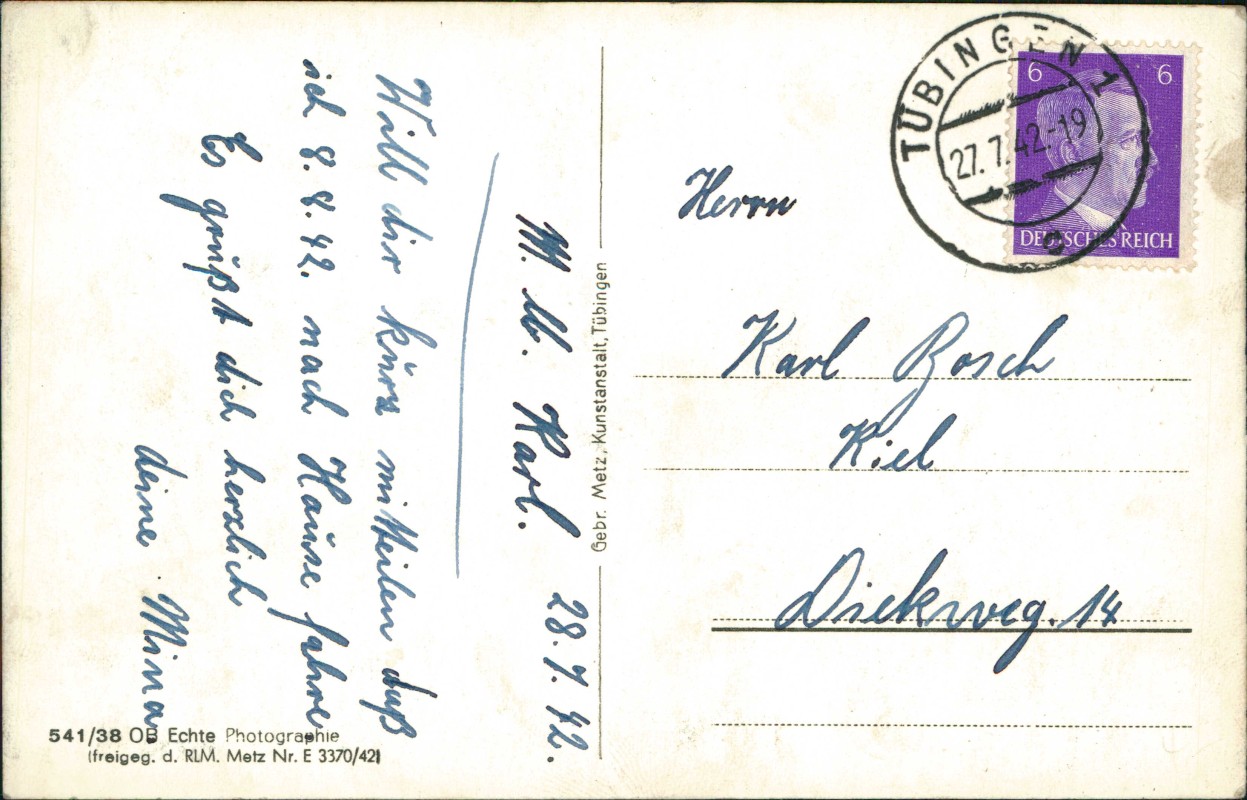 M. lb. Karl. 28.7.42.
Will dir kürz mitteilen daß
ich 8.8.42. nach Hause fahre
Es grüßt dich herzlich
deine Mina
Gebr. Metz, Kunstanstalt, Tübingen
TÜBINGEN 1
27.7.42.-19
6 6
DEUTSCHES REICH
Herrn
Karl Bosch
Kiel
Diekweg. 14
541/38 OB Echte Photographie
(freigeg. d. RLM. Metz Nr. E 3370/42)